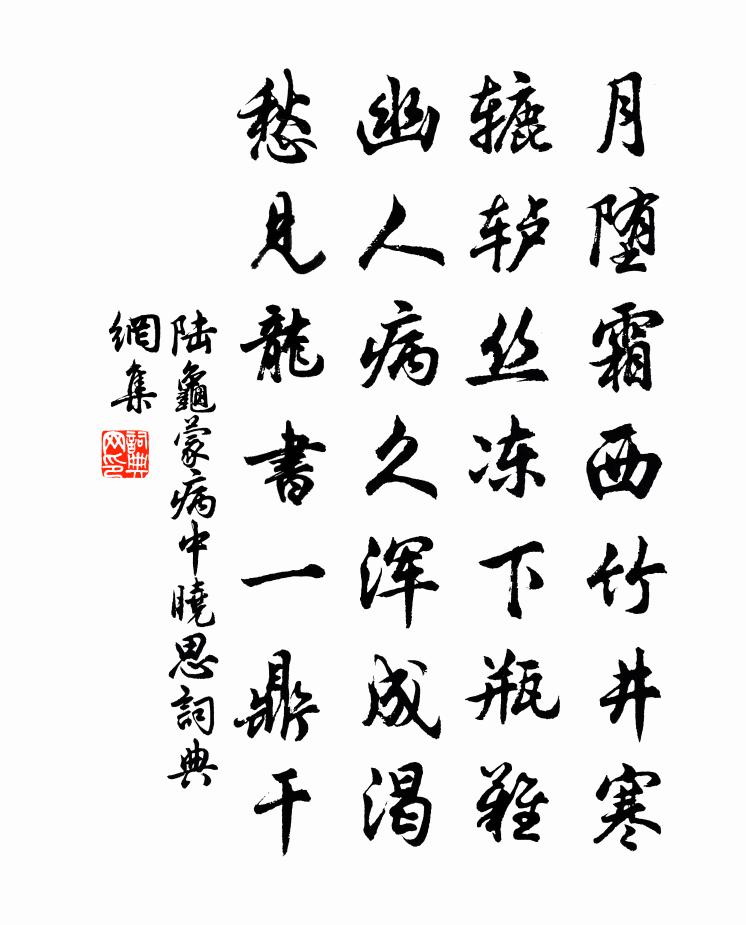 月堕霜西竹井寒
辘轳丝冻下瓶难
幽人病久浑成渴
愁见龍書一鼎干
陆龜蒙病中曉思詞典
網集
詞典
网印